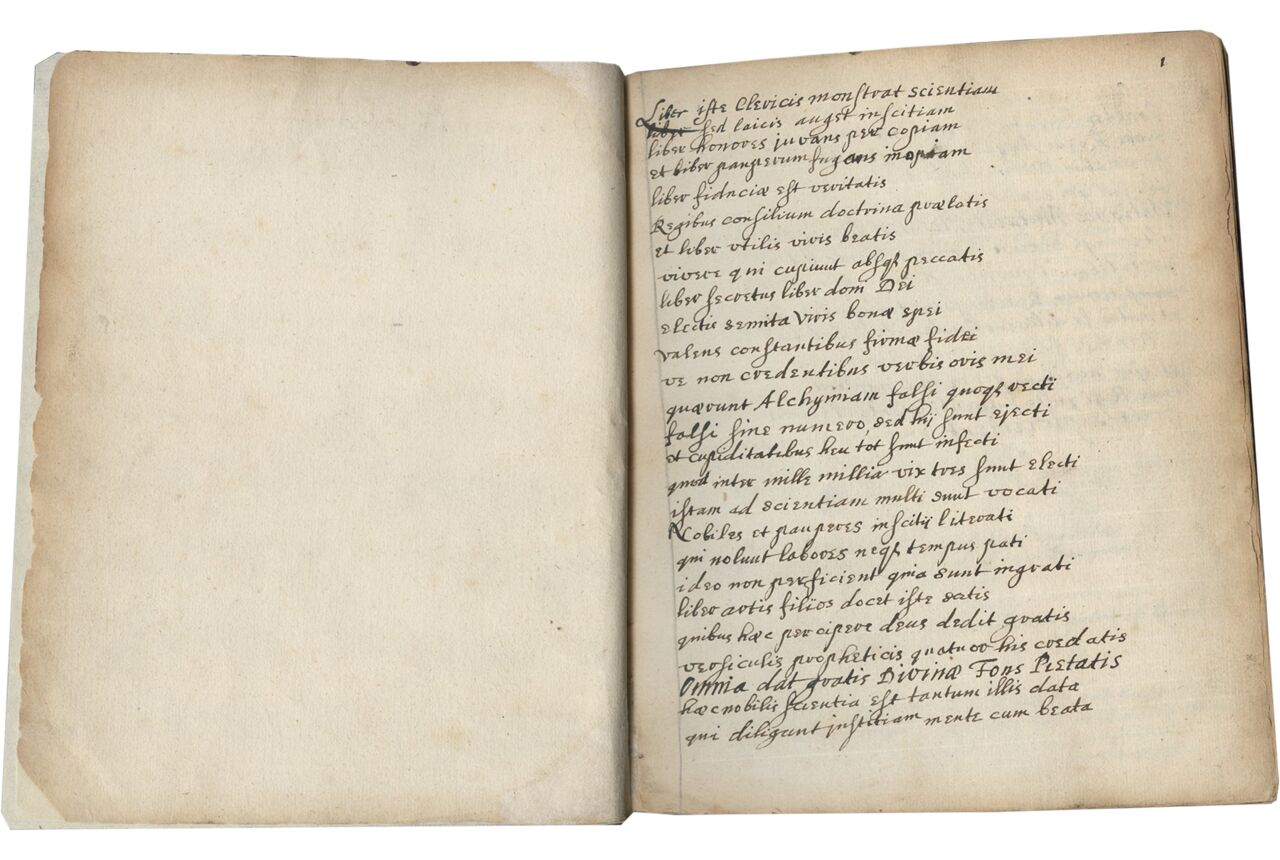 1
Liber iste Clericis monstrat scientiam
liber sed laicis auget inscitiam
liber honores juvans per copiam
et liber pauperum fugans inopiam
liber fiduciæ est veritatis
Regibus consilium doctrina prælatis
et liber vtilis viris beatis
vivere qui cupiunt absqꝫ peccatis
liber secretus liber doni Dei
electis semita viris bonæ spei
valens constantibus firmæ fidei
ve non credentibus verbis oris mei
quærunt Alchymiam falsi quoqꝫ recti
falsi sine numero sed hij sunt ejecti
et cupiditatibus heu tot sunt infecti
quod inter mille millia vix tres sunt electi
istam ad scientiam multi sunt vocati
Nobiles et pauperes inscitij literati
qui nolunt labores neqꝫ tempus pati
ideo non perficient quia sunt ingrati
liber artis filios docet iste satis
quibus hæc percipere deus dedit gratis
versiculis propheticis quatuor his credatis
Omnia dat gratis Divinæ Fons Pietatis
hæc nobilis scientia est tantum illis data
qui diligunt justitiam mente cum beata